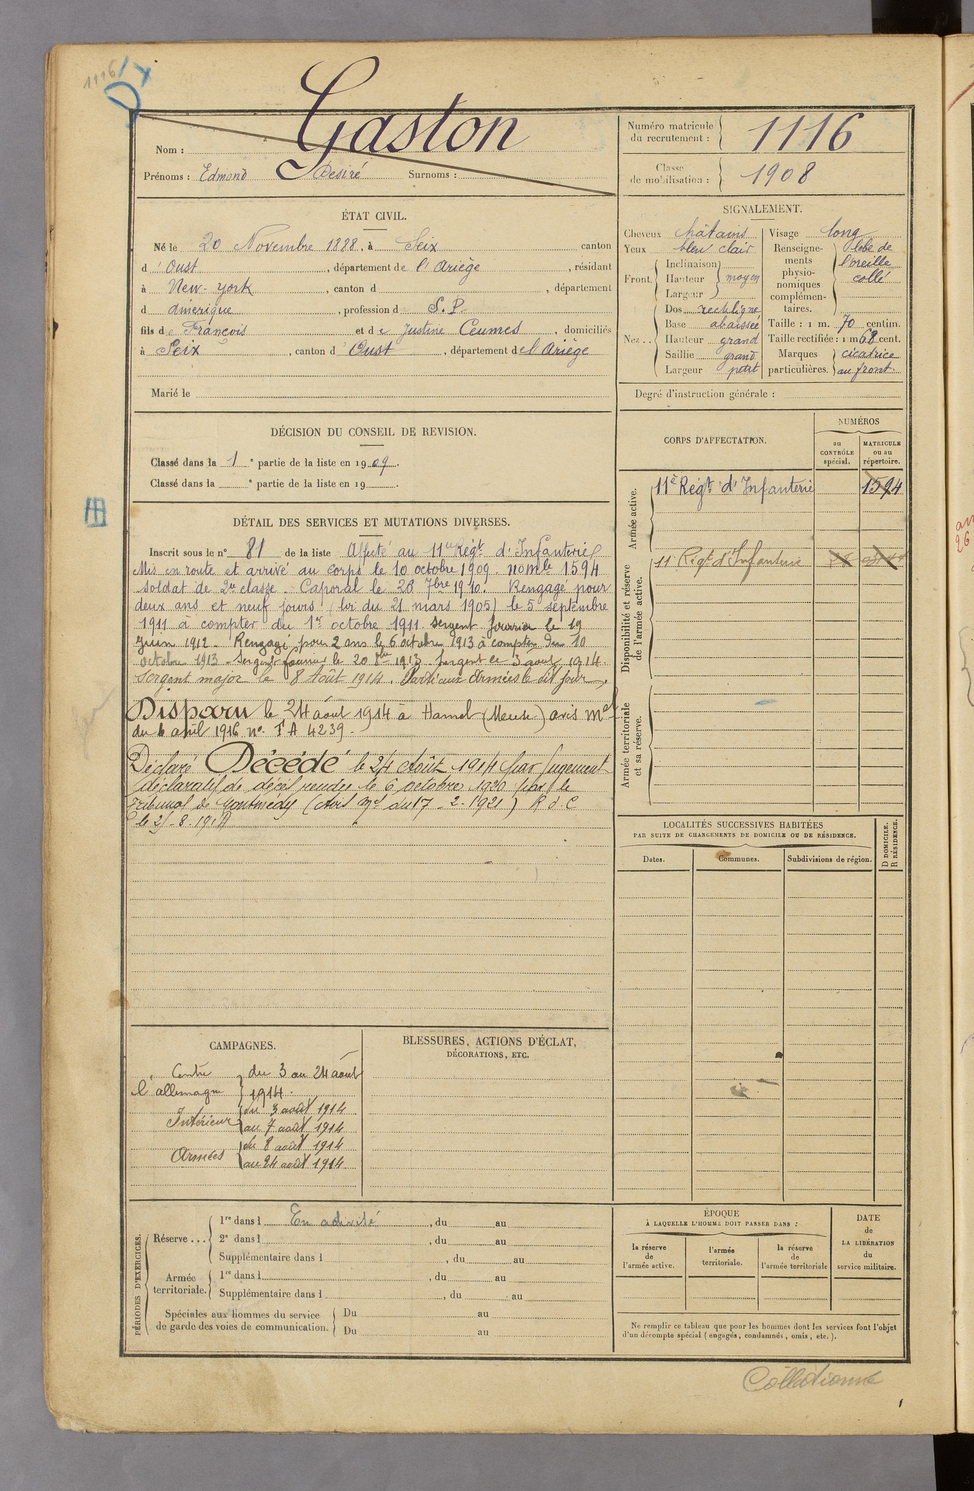 1116
Gaston
Nom :
Prénoms : Edmond Desiré Surnoms :
Numéro matricule du recrutement : 1116
Classe de mobilisation : 1908
ÉTAT CIVIL.
Né le 20 Novembre 1888, à Seix canton
d'Oust, département de l'Ariège, résidant
à New-york, canton d , département
d amérique, profession d S.P.
fils de Francois et de Justine Ceumes, domiciliés
à Seix, canton d'Oust, département de l'Ariège
Marié le
SIGNALEMENT.
Cheveux châtains
Yeux bleu clair
Front Inclinaison
Hauteur moyen
Largeur
Nez Dos rectiligne
Base abaissée
Hauteur grand
Saillie grand
Largeur petit
Visage long
Renseignements physionomiques complémentaires. lobe de
l'oreille
collé
Taille : 1 m. 70 centim.
Taille rectifiée : 1 m 68 cent.
Marques particulières. cicatrice
au front
Degré d'instruction générale :
DÉCISION DU CONSEIL DE REVISION.
Classé dans la 1e partie de la liste en 1909.
Classé dans la e partie de la liste en 19 .
CORPS D'AFFECTATION.
NUMÉROS
au CONTRÔLE spécial.
MATRICULE ou au répertoire.
Armée active.
11e Régt d'Infanterie 1594
Disponibilité et réserve de l'armée active.
11e Régt d'Infanterie
Armée territoriale et sa réserve.
DÉTAIL DES SERVICES ET MUTATIONS DIVERSES.
Inscrit sous le n° 81 de la liste Affecté au 11e Régt d'Infanterie
Mis en route et arrivé au corps le 10 octobre 1909. no mle 1594
soldat de 2e classe. Caporal le 28 7bre 1910. Rengagé pour
deux ans et neuf jours (loi du 21 mars 1905) le 5 septembre
1911 à compter du 1er octobre 1911. Sergent fourrier le 19
juin 1912. Rengagé pour 2 ans le 6 octobre 1913 à compter du 10
octobre 1913. Sergent fourrier le 20 8bre 1913. Sergent le 3 aout 1914.
Sergent major le 8 Août 1914. Parti aux Armées le dit jour.
Disparu le 24 aout 1914 à Hamel (Meuse) avis mel
du 6 avril 1916 no. FA 4239.
Déclaré Décédé le 24 Août 1914 par Jugement
déclaratif de décès rendu le 6 octobre 1920 par le
Tribunal de Montmédy (Avis Mel du 17-2-1921) R d C
le 25-8-1914
LOCALITÉS SUCCESSIVES HABITÉES
PAR SUITE DE CHANGEMENTS DE DOMICILE OU DE RÉSIDENCE.
Dates. Communes. Subdivisions de région. D DOMICILE. R RÉSIDENCE.
CAMPAGNES.
Contre du 3 au 24 aout
l'allemagne 1914.
Intérieur du 3 août 1914
au 7 août 1914
Armées du 8 août 1914
au 24 août 1914
BLESSURES, ACTIONS D'ÉCLAT,
DÉCORATIONS, ETC.
PÉRIODES D'EXERCICES.
Réserve 1re dans l En activité, du au
2e dans l , du au
Supplémentaire dans l , du au
Armée territoriale. 1re dans l , du au
Supplémentaire dans l , du au
Spéciales aux hommes du service de garde des voies de communication. Du au
Du au
ÉPOQUE
À LAQUELLE L'HOMME DOIT PASSER DANS :
la réserve de l'armée active.
l'armée territoriale.
la réserve de l'armée territoriale
DATE de LA LIBÉRATION du service militaire.
Ne remplir ce tableau que pour les hommes dont les services font l'objet
d'un décompte spécial (engagés, condamnés, omis, etc.).
Collationné